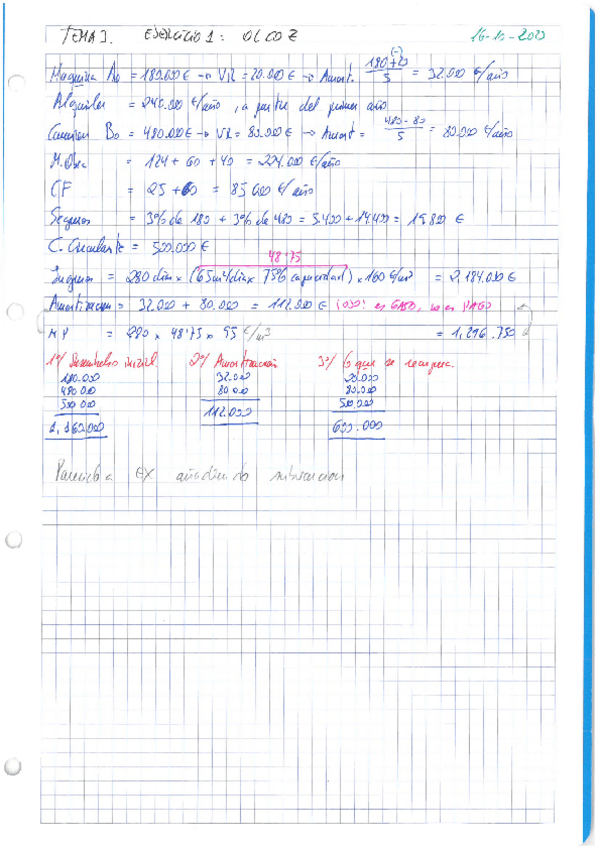 TEMA 3. EJERCICIO 1: OLCOZ 16-10-2023
Maquina A0 = 180.000 € → VR = 20.000 € → Amort. (180 + 20)/5 (-) = 32.000 €/año
Alquiler = 240.000 €/año, a partir del primer año
Camiones B0 = 480.000 € → VR = 80.000 € → Amort = (480 - 80)/5 = 80.000 €/año
M. Obra = 124 + 60 + 40 = 224.000 €/año
CF = 25 + 60 = 85.000 €/año
Seguros = 3% de 180 + 3% de 480 = 5.400 + 14.400 = 19.800 €
C. Circulante = 500.000 €
48'75
Ingresos = 280 dias × (65 m³/dia × 75% capacidad) × 160 €/m³ = 2.184.000 €
Amortizacion = 32.000 + 80.000 = 112.000 € ¡OJO! es GASTO, no es PAGO
M P = 280 × 48'75 × 95 €/m3 = 1,296.750
1º/ Desembolso inicial 2º/ Amortización 3º/ Lo que se recupera.
180.000 32.000 20.000
480.000 80.000 80.000
500.000 112.000 500.000
1.160.000 600.000
Parecido a EX añadiendo subvencion